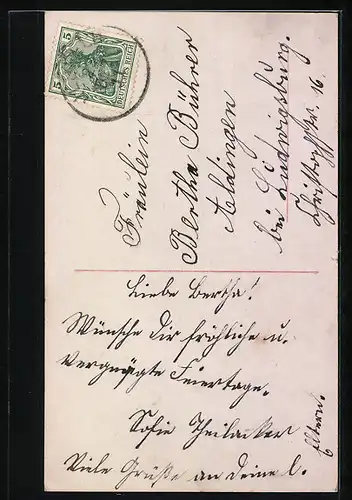 5
DEUTSCHES REICH
Fräulein
Bertha Bührer
Aldingen
bei Ludwigsburg.
16.
Liebe Bertha!
Wünsche dir fröhliche u.
vergnügte Feiertage.
Sofie Theilacker
Viele Grüße an deine l.
Eltern.